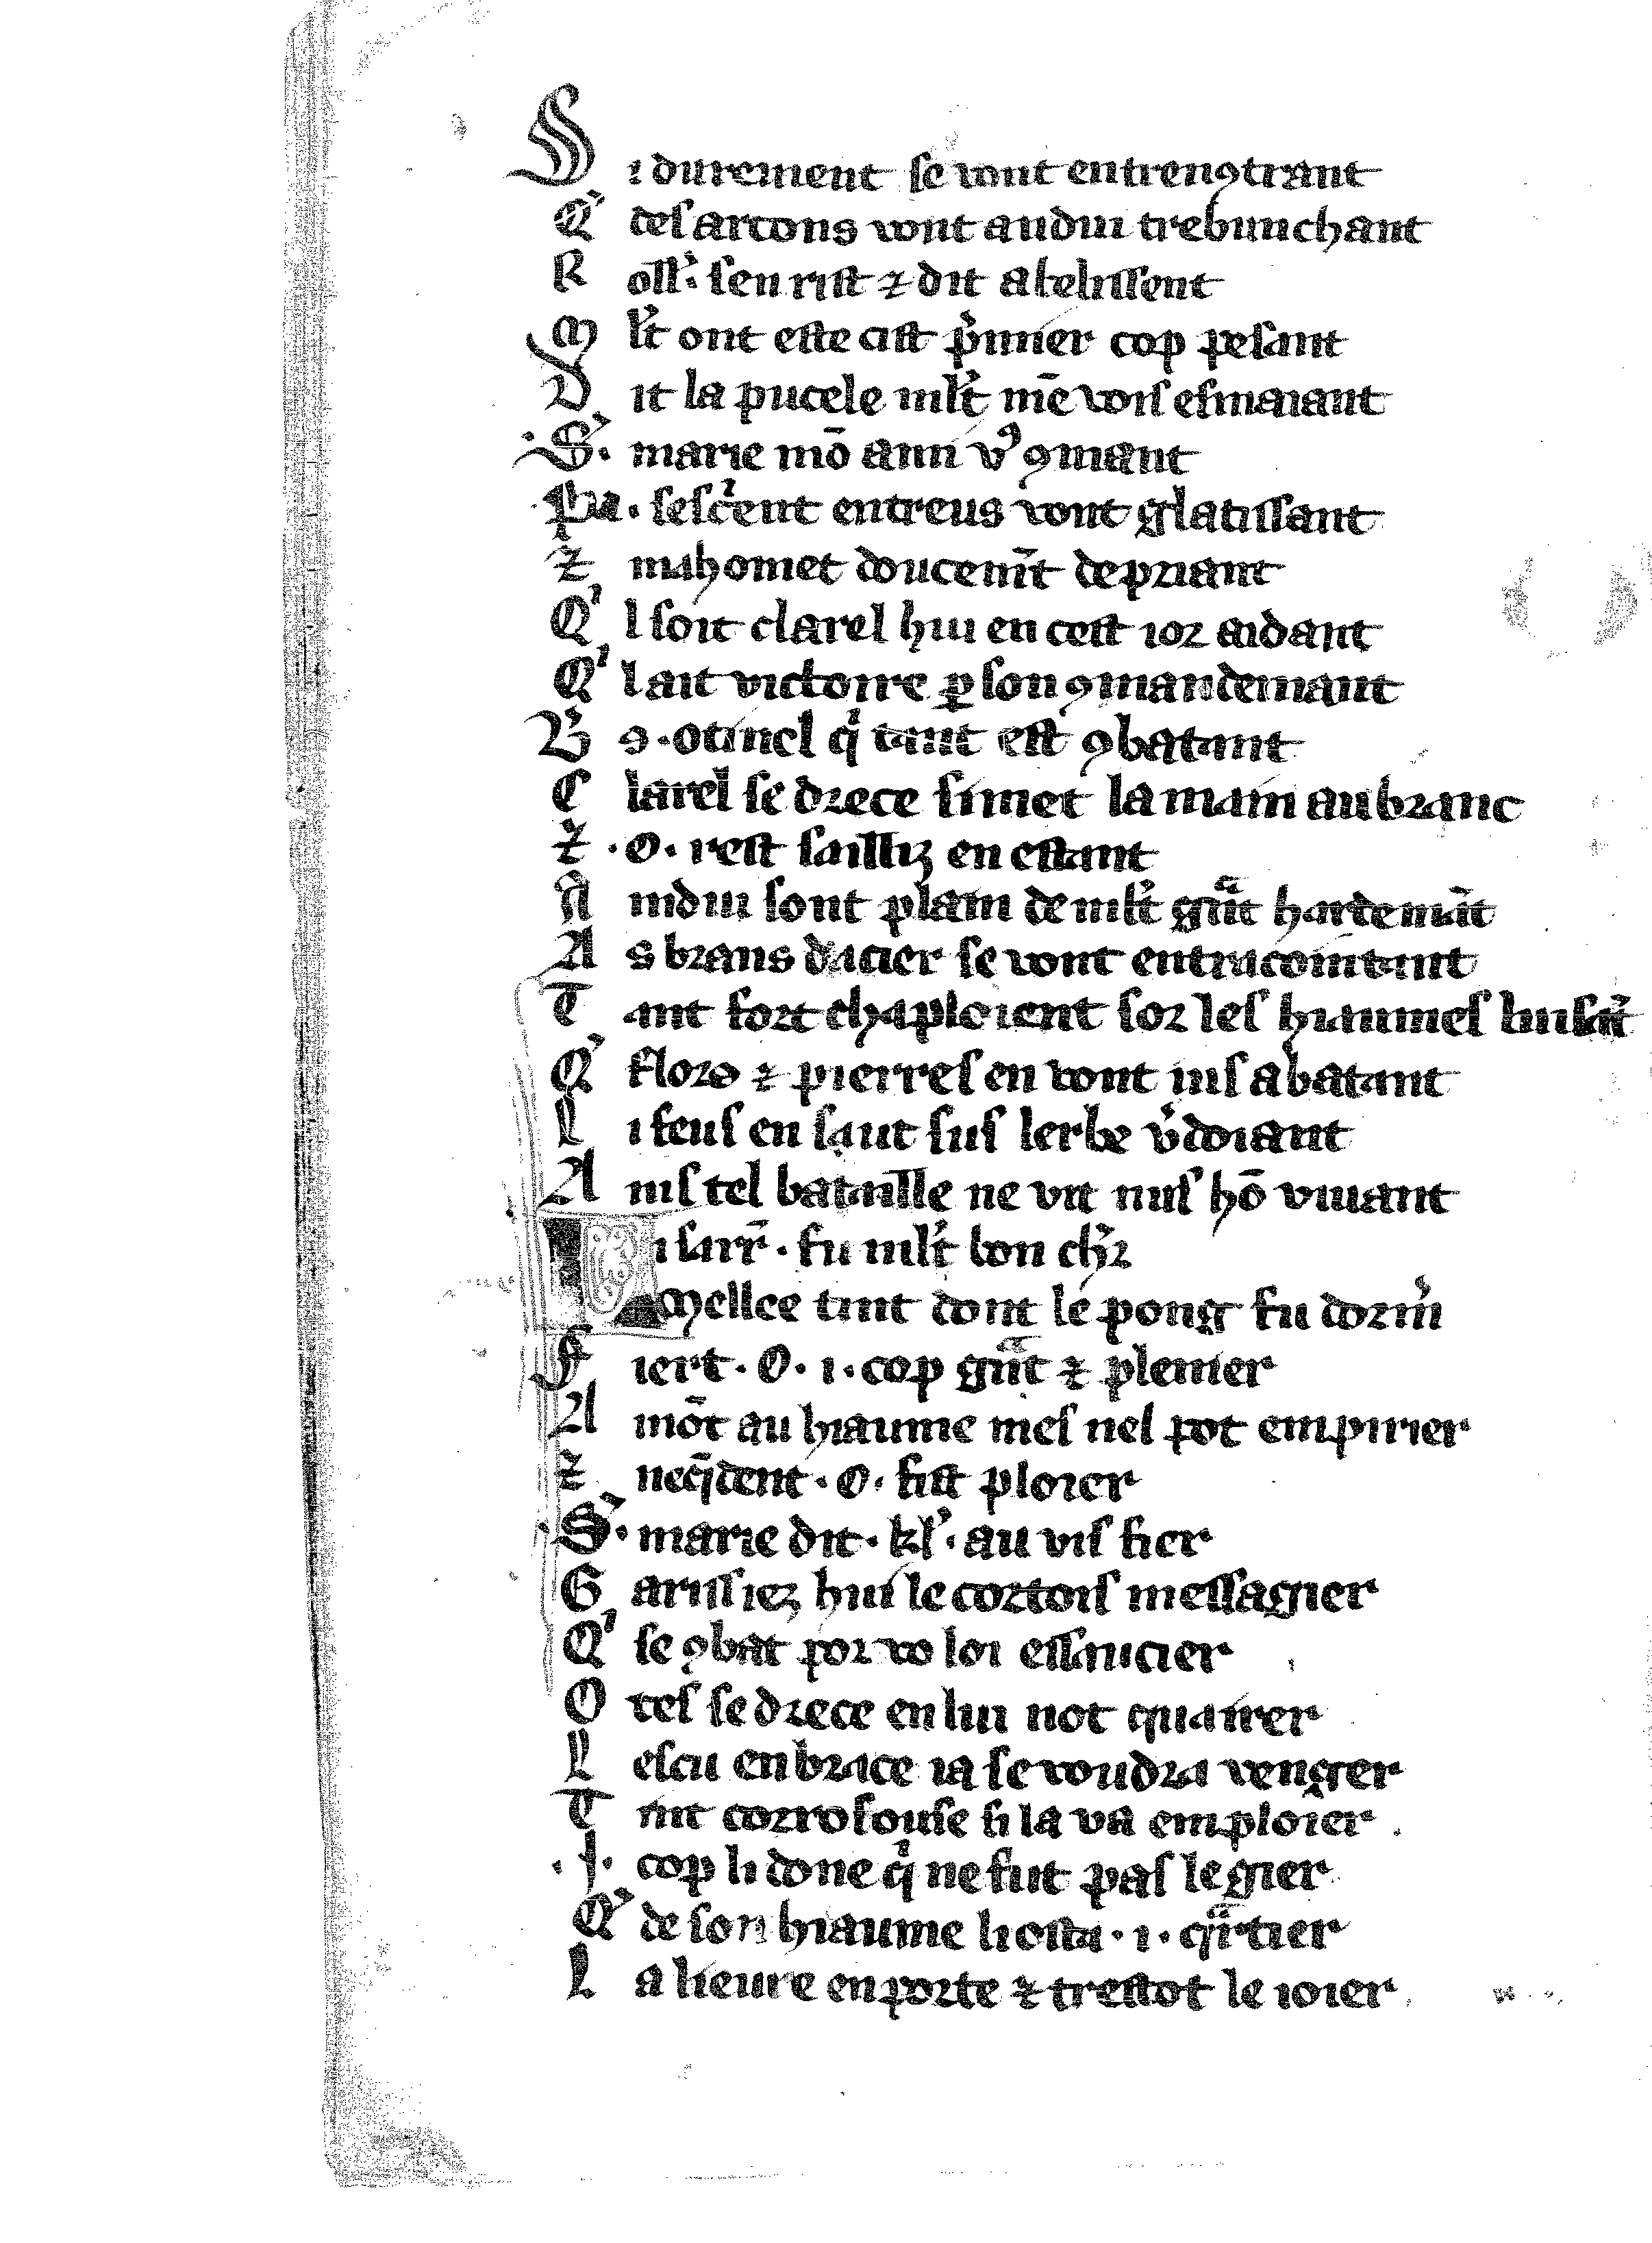 S i durement se vont entrenꝯtrant
Q' des arcons vont andui trebunchant
R oll'. sen rist ⁊ dit a belissent
M lt' ont este cist p'mier cop pesant
D it la pucele mlt' mē vois esmaiant
.S'. marie mō ami v9 ꝯmant
Pa. sescrent entreus vont glatissant
⁊ mahomet doucem̄t depriant
Q' l soit clarel hui en cest ior aidant
Q' l ait victoire ꝑ son ꝯmandemant
V 9. otinel q' tant est ꝯbatant
C larel se drece si met la main au branc
⁊ .O. rest sailliz en estant
A mdui sont plain de mlt' gͣnt hardemāt
A s brans dacier se vont entracointant
T ant fort chaploient sor les hiaumes luisāt
Q' flors ⁊ pierres en vont ius abatant
L i feus en saut sus lerbe v'doiant
A ins tel bataille ne vit nus hō viuant
L i sarr̄. fu mlt' bon ch'r
Mellee tint dont le pong fu dorm'
F iert .O. i. cop gͣnt ⁊ plenier
A mōt au hiaume mes nel pot empirier
⁊ neq̄dent .O. fist ploier
.S'. marie dit .kl'. au vis fier
G arissiez hui le cortois messagier
Q' se ꝯbat por vo loi essaucier
O tes se drece en lui not quairer
L escu enbrace ia se voudra vengier
T int corrosouse si la va emploier
.I. cop li done q' ne fut pas legier
Q' de son hiaume li osta .i. qͣrtier
L a lieure en porte ⁊ trestot le ioier